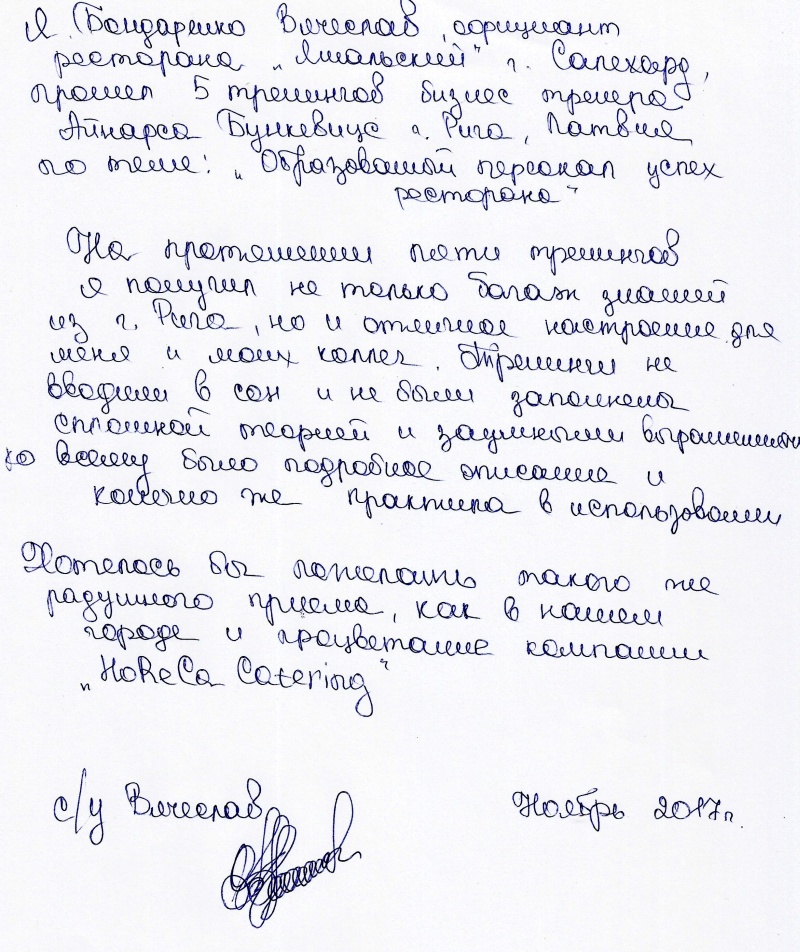 Я Бондаренко Вячеслав, официант
ресторана „Ямальский" г. Салехард,
прошел 5 тренингов бизнес тренера
Айнарса Бункевицс г. Рига, Латвия
по теме: „Образованой персонал успех
ресторана"
На протяжении пяти тренингов
я получил не только багаж знаний
из г. Рига, но и отличное настроение для
меня и моих коллег. Тренинги не
вводили в сон и не были заполнены
сплошной теорией и заумными выражениями
ко всему было подробное описание и
конечно же практика в использовании
Хотелось бы пожелать такого же
радушного приема, как в нашем
городе и процветание компании
„HoReCa Catering"
с/у Вячеслав
Ноябрь 2017г.